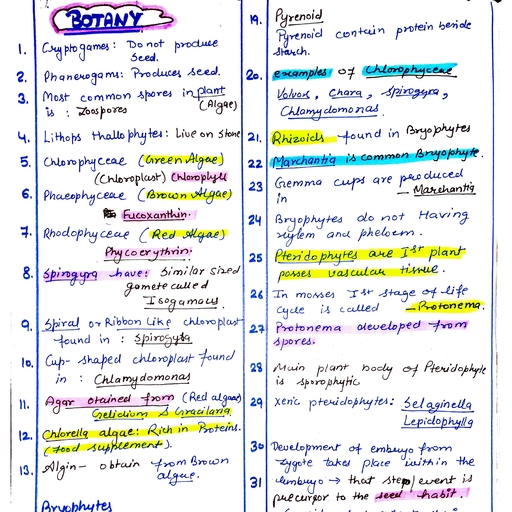 BOTANY
1. Cryptogames: Do not produce
Seed.
2. Phanerogams: Produces seed.
3. Most common spores in plant
is : Zoospores (Algae)
4. Lithops thallophytes: Live on stone
5. Chlorophyceae (Green Algae)
(Chloroplast) Chlorophyll
6. Phaeophyceae (Brown Algae)
Fucoxanthin.
7. Rhodophyceae (Red Algae)
Phycoerythrin.
8. Spirogyra have: Similar sized
gamete called
Isogamous.
9. Spiral or Ribbon Like chloroplast
found in : Spirogyra
10. Cup-shaped chloroplast found
in : Chlamydomonas
11. Agar otained from (Red algae)
Gelidium & Gracilaria
12. Chlorella algae: Rich in Proteins.
(food supplement).
13. Algin- obtain from Brown
algae.
Bryophytes
19. Pyrenoid
Pyrenoid contain protein beside
starch.
20. examples of Chlorophyceae
Volvox, Chara, Spirogyra,
Chlamydomonas.
21. Rhizoids found in Bryophytes
22. Marchantia is common Bryophyte.
23 Gemma cups are produced
in - Marchantia
24 Bryophytes do not Having
xylem and phloem.
25 Pteridophytes are Ist plant
posses vascular tissue.
26 In mosses Ist stage of life
cycle is called - Protonema.
27 Protonema developed from
spores.
28 Main plant body of Pteridophyte
is sporophytic
29 Xeric pteridophytes: Selaginella
Lepidophylla
30 Development of embryo from
zygote takes place within the
31 embryo → that step/event is
precursor to the seed habit.